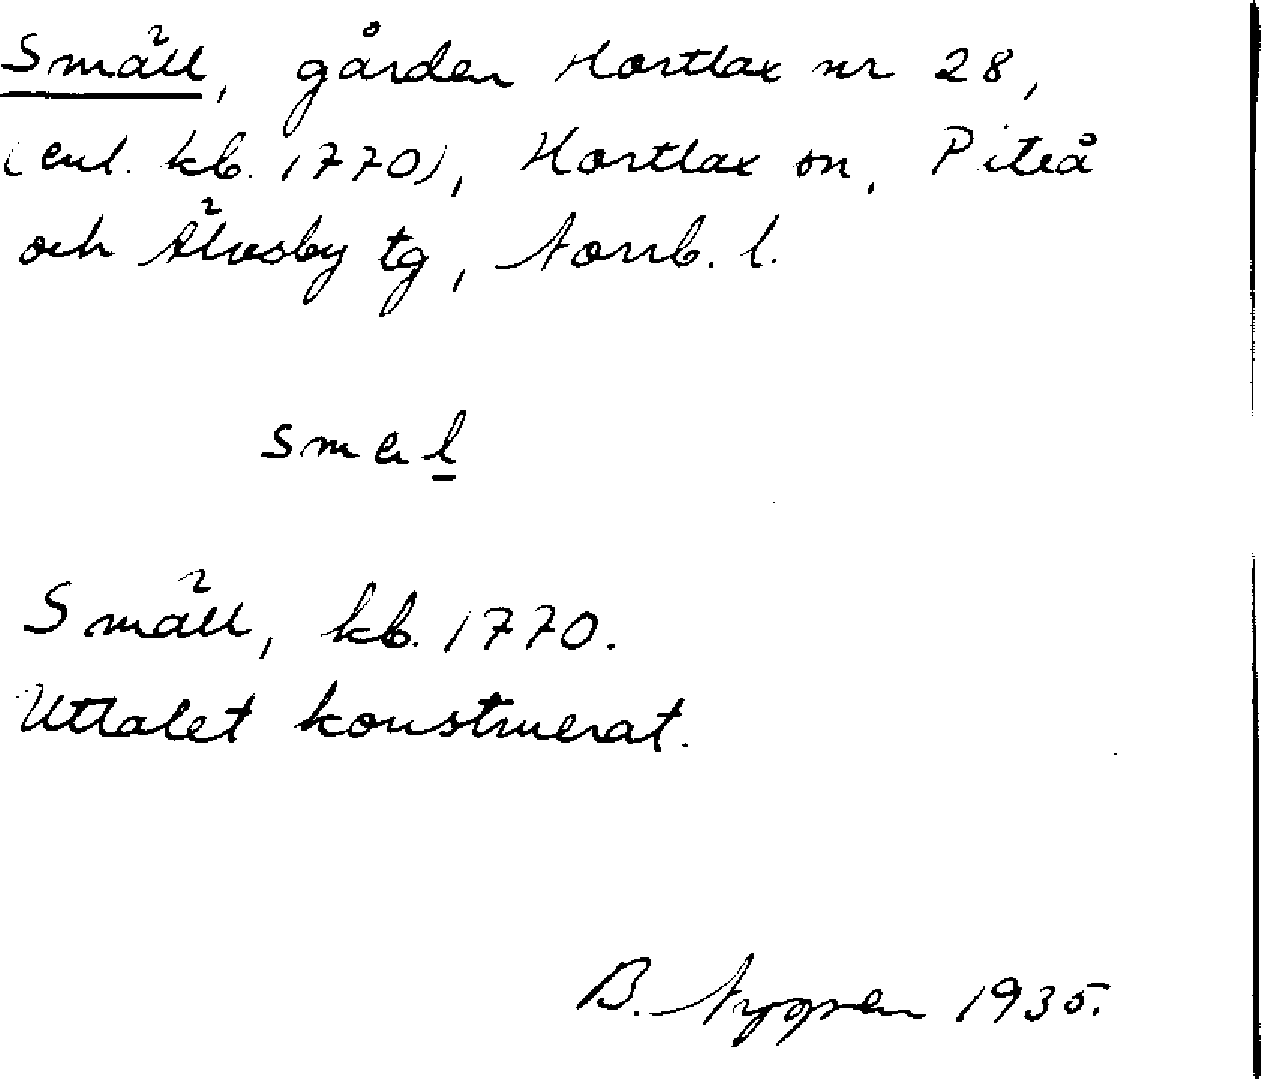 Smäll, gården Hortlax nr 28,
(enl. kb. 1770), Hortlax sn, Piteå
och Älvsby tg, Norrb. l.
smɛl
Smäll, kb. 1770.
Uttalet konstruerat.
B. Nygren 1935.